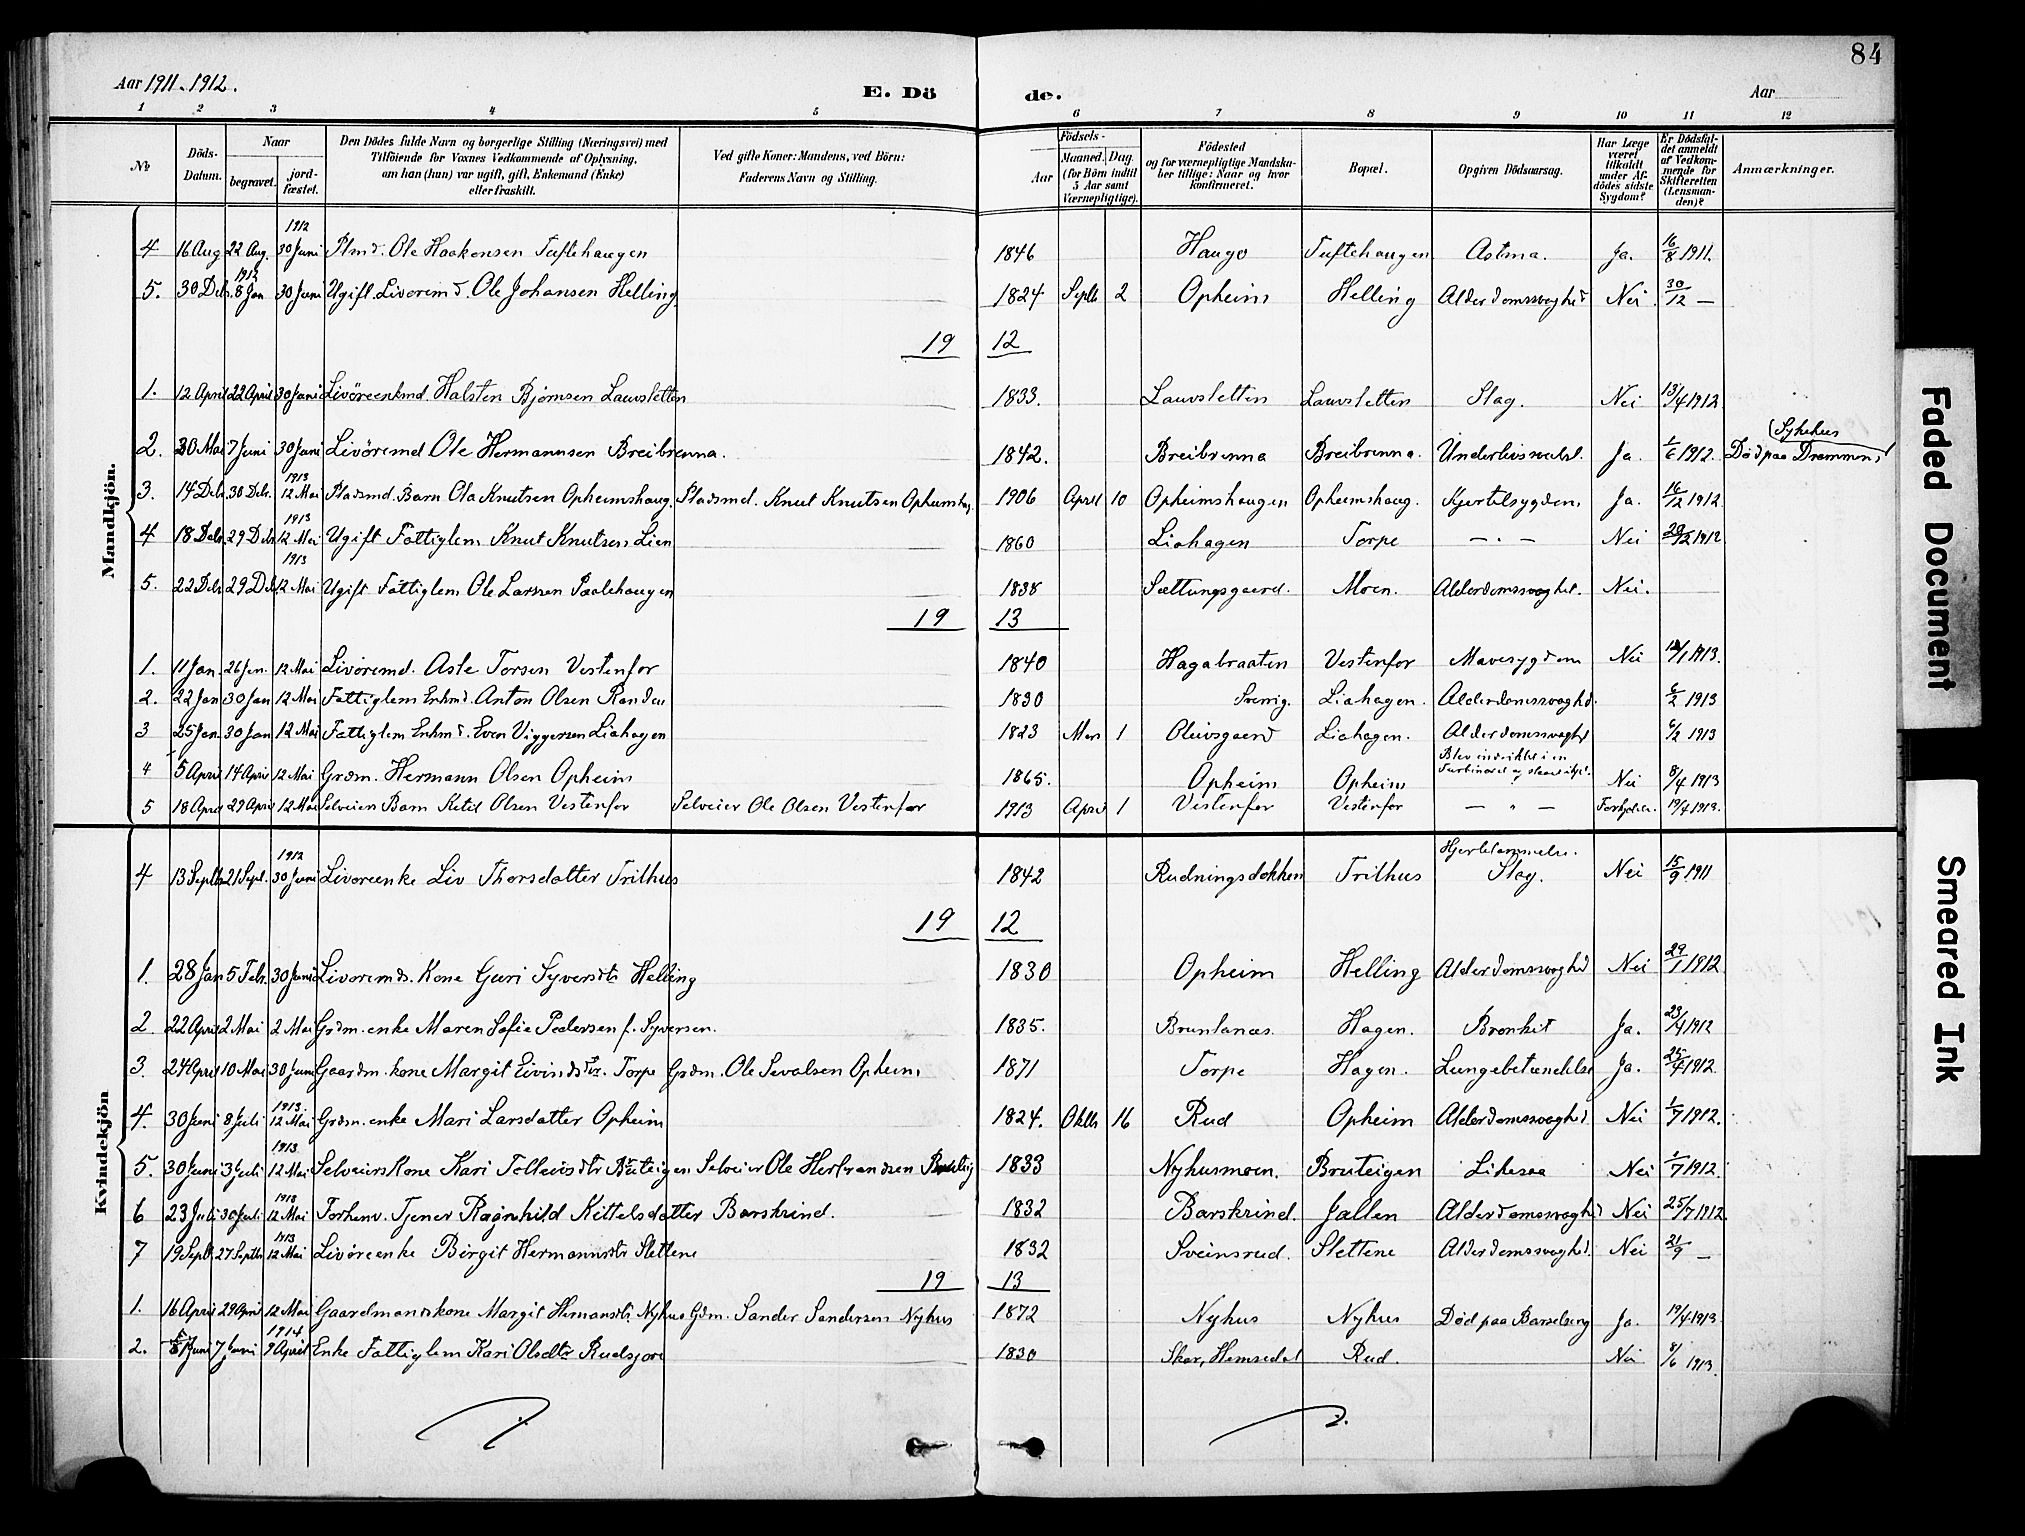 84
Aar 1911-1912.
E. Döde.
Aar
1 2 3 4 5 6 7 8 9 10 11 12
№
Döds-Datum.
Naar
begravet.
jord-fæstet.
Den Dödes fulde Navn og borgerlige Stilling (Næringsvei) med
Tilföiende for Voxnes Vedkommende af Oplysning,
om han (hun) var ugift, gift, Enkemand (Enke)
eller fraskilt.
Ved gifte Koner: Mandens, ved Börn:
Faderens Navn og Stilling.
Födsels-
Aar
Maaned. Dag.
(for Börn indtil
5 Aar samt
Værnepligtige).
Födested
og for værnepligtige Mandska-
ber tillige: Naar og hvor
konfirmeret.
Bopæl.
Opgiven Dödsaarsag.
Har Læge
været
tilkaldt
under Af-
dödes sidste
Sygdom?
Er Dödsfal-
det anmeldt
af Vedkom-
mende for
Skifteretten
(Lensman-
den)?
Anmærkninger.
Mandkjön.
1912
4 16 Aug 22 Aug. 30 Juni Plmd. Ole Haakensen Tuftehaugen 1846 Haugo Tuftehaugen Astma. Ja. 16/8 1911.
1912
5. 30 Dcb. 8 Jan 30 Juni Ugift. Livöremd. Ole Johansen Helling 1824 Septb 2 Opheim Helling Alderdomssvaghed Nei 30/12 —
19 12
1. 12 April 22 April 30 Juni Livöreenkmd. Halsten Bjørnsen Lauvsletten 1833. Lauvsletten Lauvsletten Slag. Nei 13/4 1912
2. 30 Mai 7 Juni 30 Juni Livöremd Ole Hermannsen Breibrenna. 1842. Breibrenna Breibrenna. Ja. 1/6 1912. Död paa Drammens
(Sykehus
1913
3. 14 Dcb. 30 Dcb. 12 Mai Pladsmd. Barn Ola Knutsen Opheimshaug. Pladsmd. Knut Knutsen Opheimshaug. 1906 April 10 Opheimshaugen Opheimshaug. Kjertelsygdom Ja. 16/12 1912
1913
4 18 Dcb. 29 Dcb 12 Mai Ugift Fattiglem Knut Knutsen Lien 1860 Liahagen Torpe — " — Nei 29/12 1912
1913
5. 22 Dcb 29 Dcb 12 Mai Ugift Fattiglem Ole Larssen Paalehaugen 1838 Sættungsgaard. Moen. Alderdomssvaghed. Nei.
19 13
1. 11 Jan. 26 Jan. 12 Mai Livöremd. Asle Torsen Vestenfor 1840 Hagabraaten Vestenfor Mavesygdom Nei 12/1 1913.
2. 22 Jan 30 Jan 12 Mai Fattiglem Enkmd. Anton Olsen Randen 1830 Sverrig. Liahagen. Alderdomssvaghed. 6/2 1913
3 25 Jan. 30 Jan 12 Mai Fattiglem Enkmd. Even Viggersen Liahagen 1823 Mars 1 Oleivsgaard Liahagen. Alderdomssvaghed 6/2 1913
4 5 April 14 April 12 Mai Grdm. Hermann Olsen Opheim 1865. Opheim Opheim Blev indviklet i en Nei 8/4 1913
5 18 April 29 April 12 Mai Selveiers Barn Ketil Olsen Vestenfor Selveier Ole Olsen Vestenfor 1913 April 1 Vestenfor Vestenfor — " — 19/4 1913.
Kvindekjön
1912
4 13 Septb 21 Sept. 30 Juni Livöreenke Liv Thorsdatter Trilhus 1842 Rudningsdokken Trilhus Hjertelammelse. Slag. Nei 15/9 1911
19 12
1. 28 Jan 5 Febr. 30 Juni Livöremds. Kone Guri Syversdtr Helling 1830 Opheim Helling Alderdomssvaghed Nei 29/1 1912
2. 22 April 2 Mai 2 Mai Grdm. enke Maren Sofie Pedersen f. Syversen. 1835. Brunlanæs. Hagen. Bronkit Ja. 23/4 1912
3. 24 April 10 Mai 30 Juni Gaardm. kone Margit Eivindsdtr. Torpe Grdm. Ole Sevalsen Opheim 1871 Torpe Hagen. Lungebetændelse Ja. 25/4 1912.
1913.
4. 30 Juni 8 Juli 12 Mai Grdm. enke Mari Larsdatter Opheim 1824. Oktb 16 Rud Opheim Alderdomssvaghed Nei 1/7 1912.
1913
5. 30 Juni 3 Juli 12 Mai Selveiers Kone Kari Tollevsdtr Bruteigen Selveier Ole Herbrandsen Bruteig 1833 Nyhusmoen. Bruteigen Likesaa Nei 1/7 1912.
1913
6 23 Juli 30 Juli 12 Mai Forhenv. Tjener Ragnhild Kittelsdatter Barskrind. 1832 Barskrind. Jallen Alderdomssvaghed Nei 25/7 1912.
1913
7 19 Septb 27 Septb 12 Mai Livöreenke Birgit Hermannsdtr Slettene 1832 Sveinsrud. Slettene Alderdomssvaghed. Nei 21/9 —
19 13
1. 16 April 29 April 12 Mai Gaardmandskone Margit Hermansdtr Nyhus Gdm. Sander Sandersen Nyhus 1872 Nyhus Nyhus Död paa Barselseng Ja. 19/4 1913
1914
2. 5 Juni 7 Juni 9 April Enke Fattiglem Kari Olsdtr Rudsjore 1830 Skar, Hemsedal Rud. Nei 8/6 1913.
Faded Document
Smeared Ink